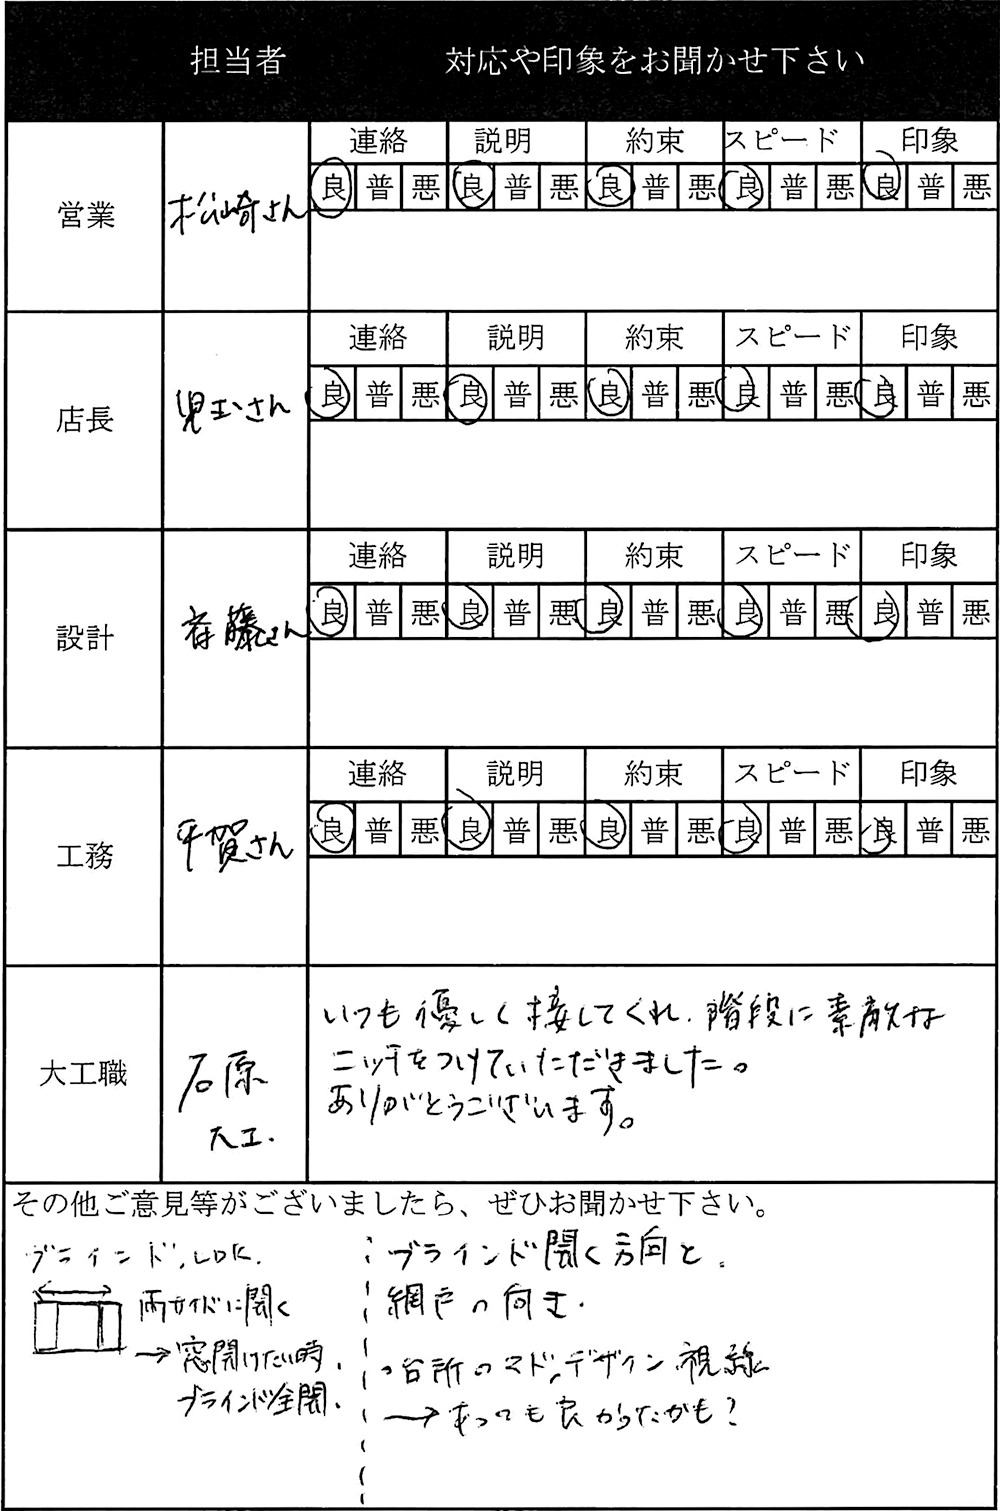 担当者 対応や印象をお聞かせ下さい
連絡 説明 約束 スピード 印象
営業 松崎さん 良 普 悪 良 普 悪 良 普 悪 良 普 悪 良 普 悪
連絡 説明 約束 スピード 印象
店長 児玉さん 良 普 悪 良 普 悪 良 普 悪 良 普 悪 良 普 悪
連絡 説明 約束 スピード 印象
設計 斉藤さん 良 普 悪 良 普 悪 良 普 悪 良 普 悪 良 普 悪
連絡 説明 約束 スピード 印象
工務 平賀さん 良 普 悪 良 普 悪 良 普 悪 良 普 悪 良 普 悪
大工職 石原
大工.
いつも優しく接してくれ、階段に素敵な
ニッチをつけていただきました。
ありがとうございます。
その他ご意見等がございましたら、ぜひお聞かせ下さい。
ブラインド、LDK.
両サイドに開く
→窓開けたい時、
ブラインド全開.
ブラインド開く方向と、
網戸の向き.
台所のマド、デザイン 視線
→あっても良かったかも?